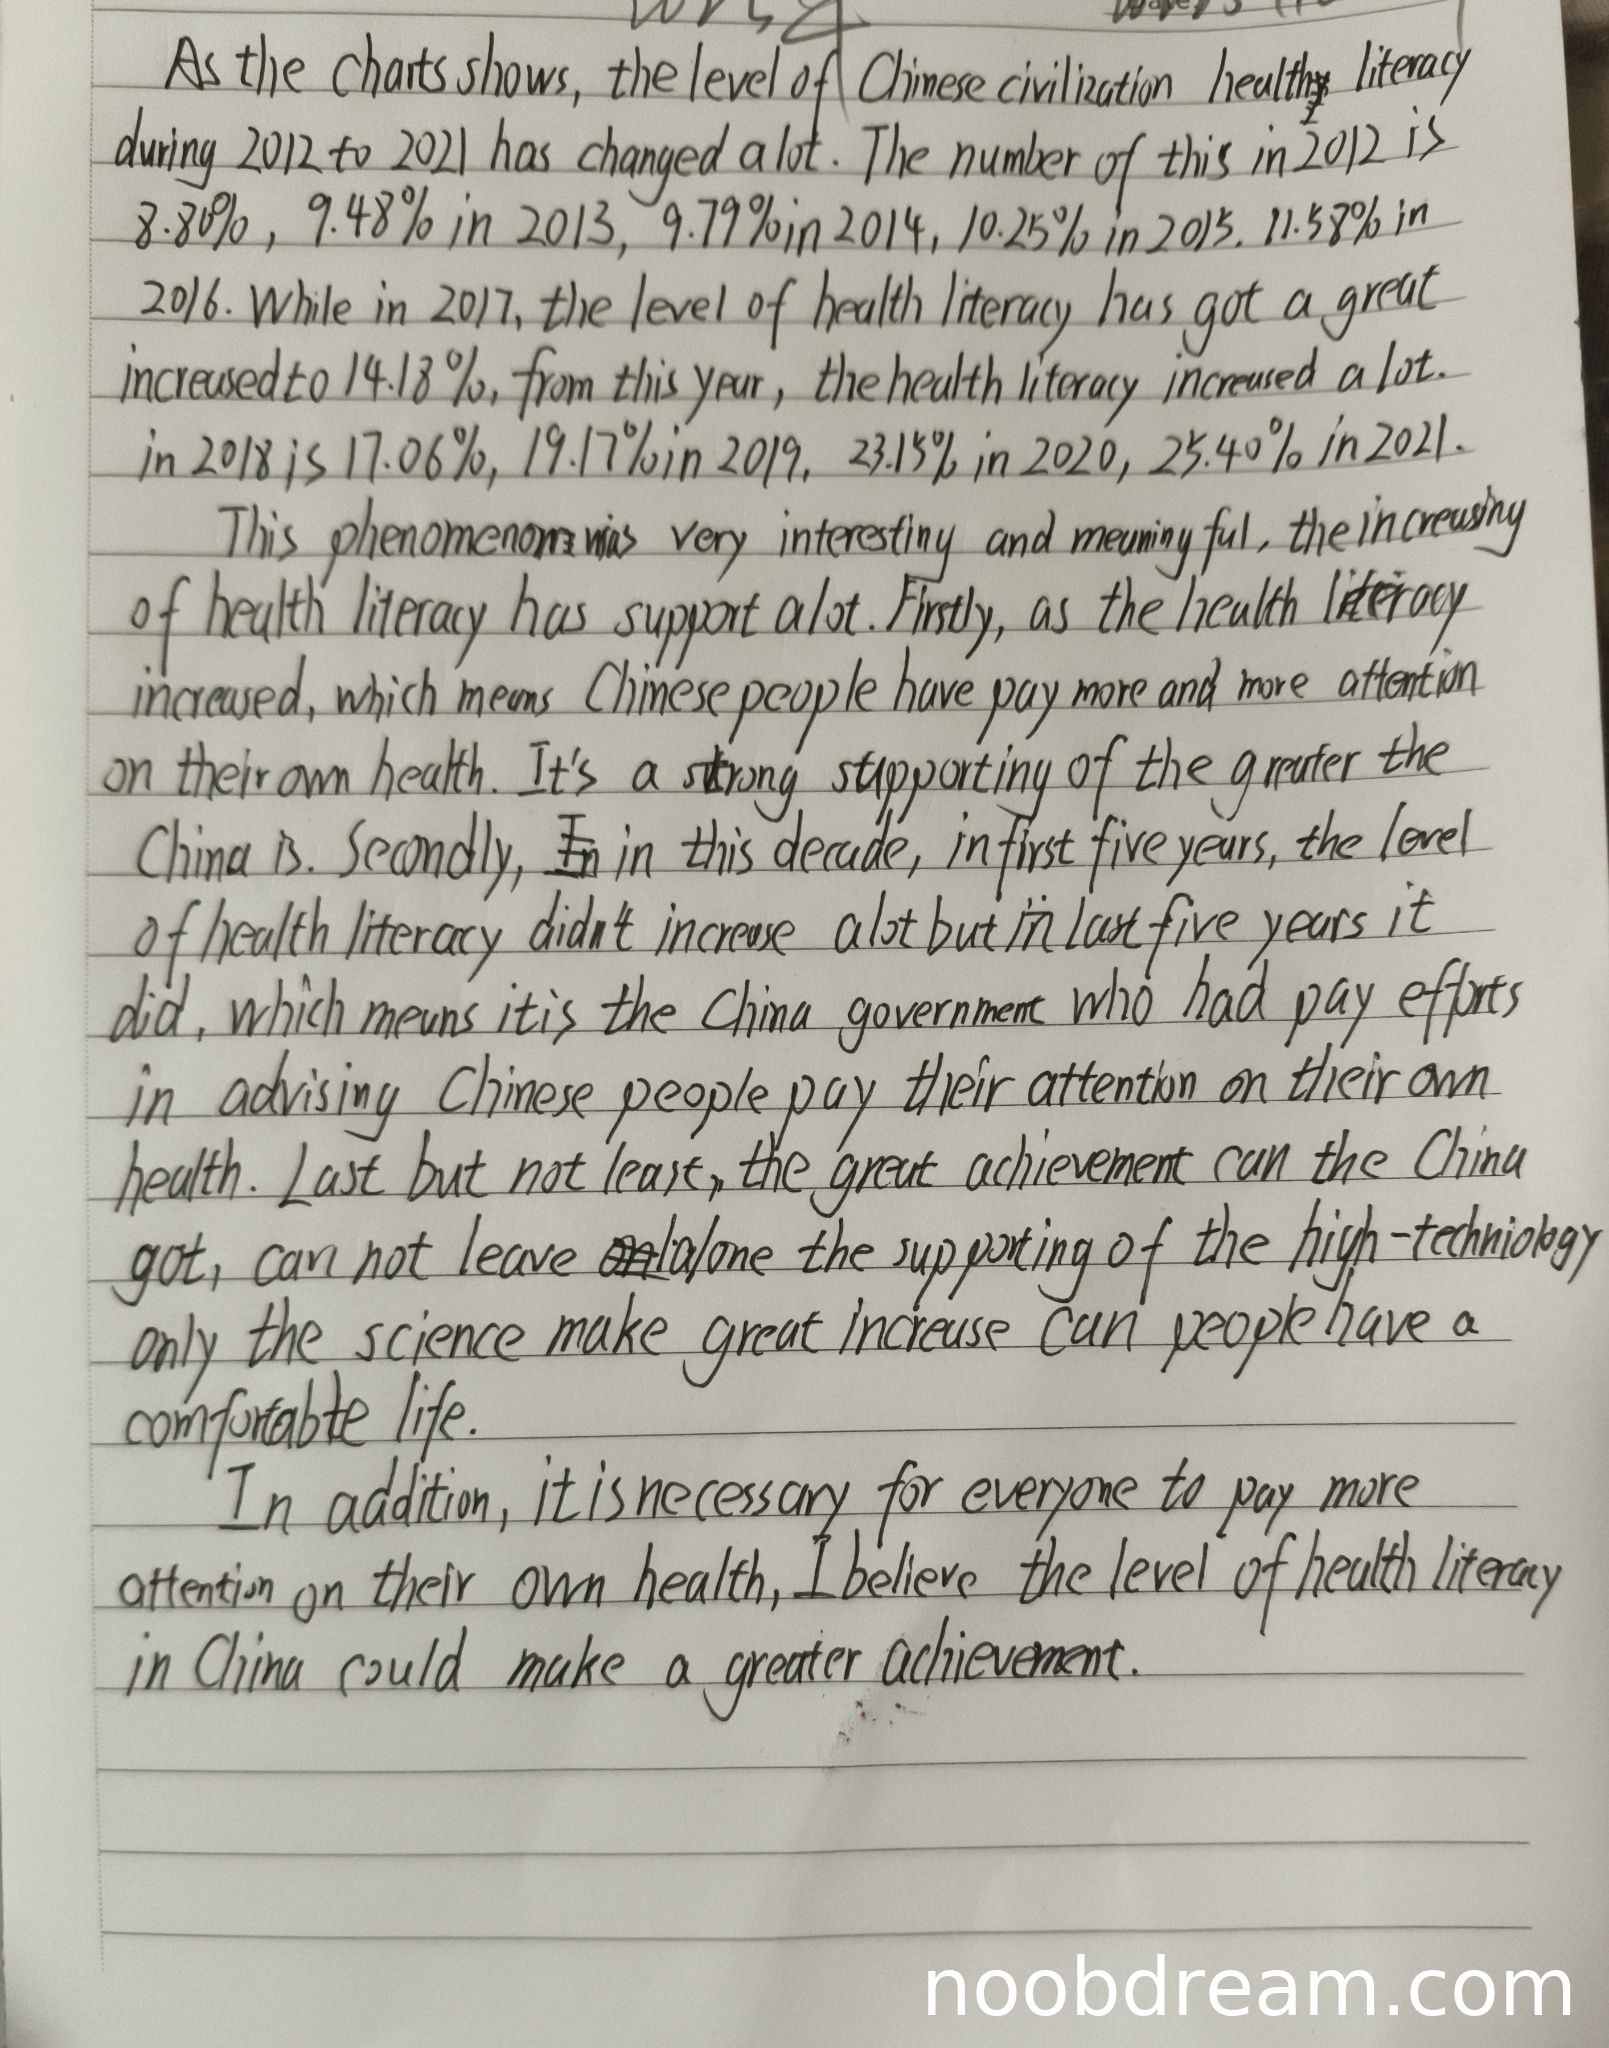 As the charts shows, the level of Chinese civilization health literacy
during 2012 to 2021 has changed a lot. The number of this in 2012 is
8.80%, 9.48% in 2013, 9.79% in 2014, 10.25% in 2015. 11.58% in
2016. While in 2017, the level of health literacy has got a great
increased to 14.18%, from this year, the health literacy increased a lot.
in 2018 is 17.06%, 19.17% in 2019, 23.15% in 2020, 25.40% in 2021.
This phenomenon was very interesting and meaningful, the increasing
of health literacy has support a lot. Firstly, as the health literacy
increased, which means Chinese people have pay more and more attention
on their own health. It's a strong supporting of the greater the
China is. Secondly, in this decade, in first five years, the level
of health literacy didn't increase a lot but in last five years it
did, which means it is the China government who had pay efforts
in advising Chinese people pay their attention on their own
health. Last but not least, the great achievement can the China
got, can not leave alone the supporting of the high-techniology
only the science make great increase can people have a
comfortable life.
In addition, it is necessary for everyone to pay more
attention on their own health, I believe the level of health literacy
in China could make a greater achievement.
noobdream.com